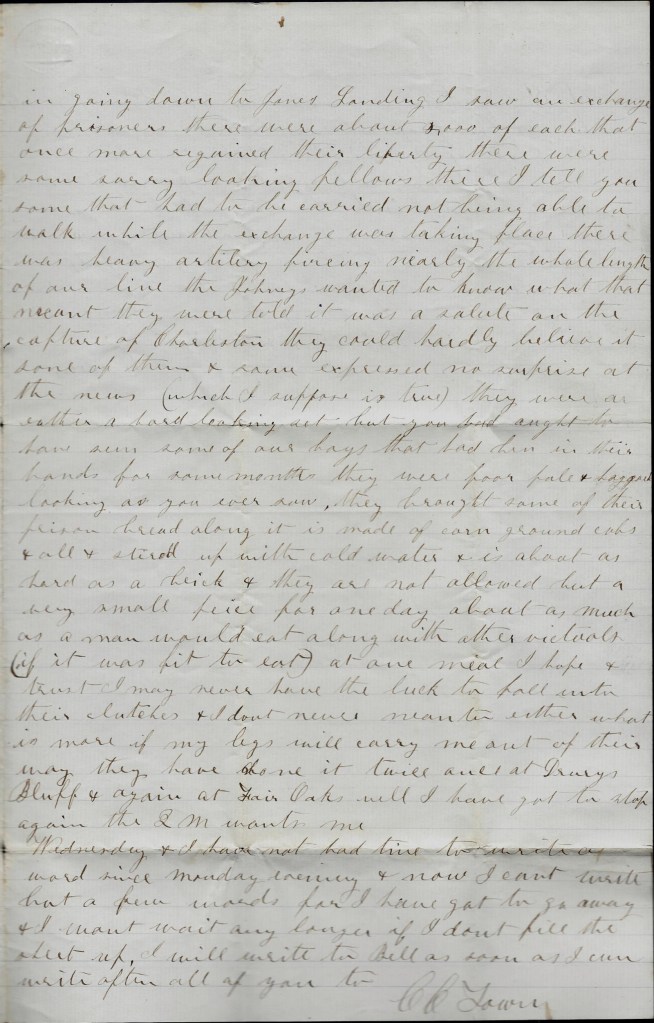 in going down to Jones Landing I saw an exchange
of prisoners there were about 1,000 of each that
once more regained their liberty there were
some sorry looking fellows there I tell you
some that had to be carried not being able to
walk while the exchange was taking place there
was heavy artilery fireing nearly the whole length
of our line the Johneys wanted to know what that
meant they were told it was a salute on the
capture of Charleston they could hardly believe it
some of them & some expressed no surprise at
the news (which I suppose is true) they were
rather a hard looking set but you had aught to
have seen some of our boys that had ben in their
hands for some months they were poor pale & haggard
looking as you ever saw, they brought some of their
prison bread along it is made of corn ground cobs
& all & stired up with cold water & is about as
hard as a brick & they are not allowed but a
very small peice for one day about as much
as a man would eat along with other victuals
(if it was fit to eat) at one meal I hope &
trust I may never have the luck to fall into
their clutches & I dont never mean to either what
is more if my legs will carry me out of their
way they have done it twice once at Drurys
Bluff & again at Fair Oaks well I have got to stop
again the Q M wants me
Wednesday & I have not had time to write a
word since monday evening & now I cant write
but a few words for I have got to go away
& I wont wait any longer if I dont fill the
sheet up, I will write to Bell as soon as I can
write often all of you to
C C Town